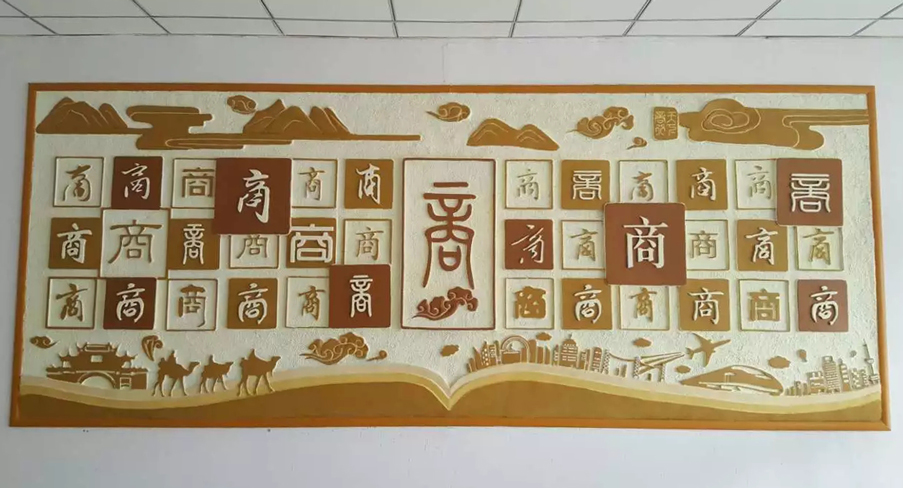 商 商 商 商 商 商
商 商 商 商 商 商
商 商 商 商 商 商
商
商 商 商 商 商 商
商 商 商 商 商 商
商 商 商 商 商 商